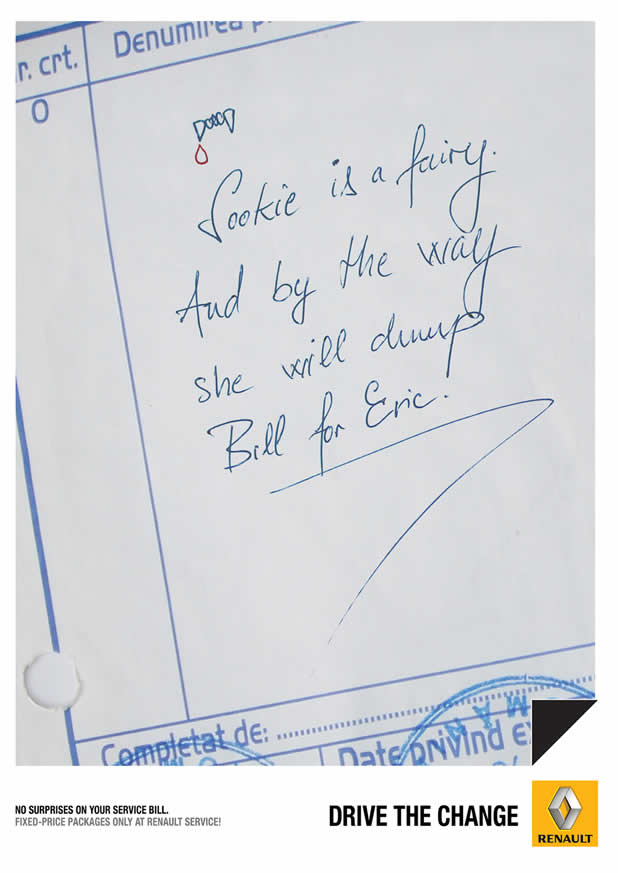 r. crt.
Denumirea p
0
Sookie is a fairy.
And by the way
she will dump
Bill for Eric!
Completat de:
Date privind e
M A N
NO SURPRISES ON YOUR SERVICE BILL.
FIXED-PRICE PACKAGES ONLY AT RENAULT SERVICE!
DRIVE THE CHANGE
RENAULT